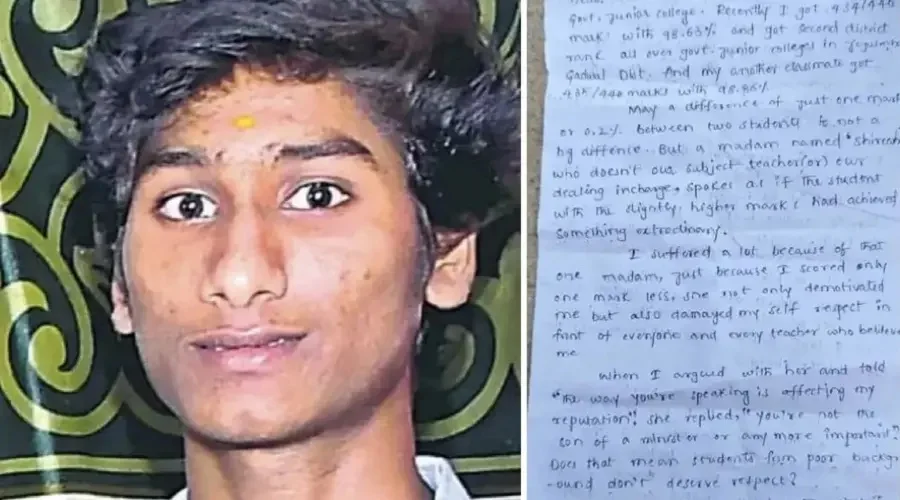 Govt. Junior college. Recently I got 434/440
mark with 98.63% and got second district
rank all over govt. junior colleges in
Gadwal Dist. And my another classmate got
435/440 marks with 98.86%
May a difference of just one mark
or 0.2% between two students is not a
big diffence. But a madam named "Shireesh
who doesn't our subject teacher(or) our
dealing incharge, spokes as if the student
with the slightly higher marks had achieved
something extrodinary.
I suffored a lot because of that
one madam, just because I scored only
one mark less, she not only demotivated
me but also damaged my self respect in
front of everyone and every teacher who believe
me
When I argued with her and told
"the way you're speaking is affecting my
reputation", she replied, "you're not the
son of a minister or any more important".
Does that mean students from poor backgr
-ound don't deserve respect?